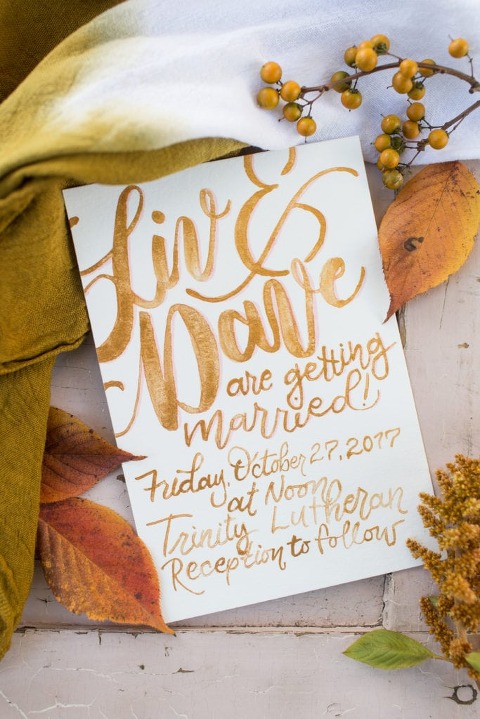 Liv &
Dave
are getting
married!
Friday, October 27, 2017
at Noon
Trinity Lutheran
Reception to follow